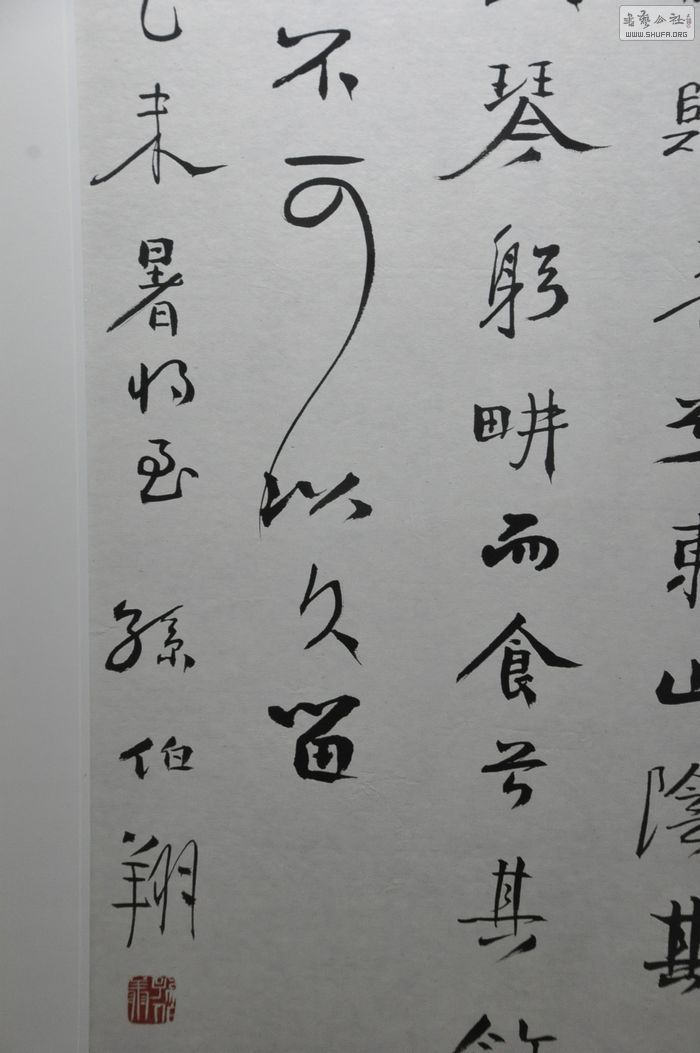 書藝公社
WWW.SHUFA.ORG
東山陰
琴躬畊而食兮其
不可以久留
乙未暑将至 孫伯翔